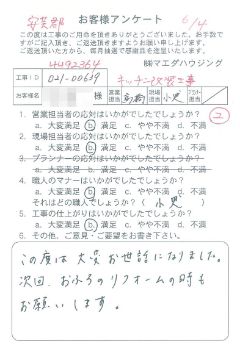 安芸郡 お客様アンケート 6/4
この度は工事のご用命を頂きありがとうございました。お手数で
すがご記入頂き、ご返送頂きますようお願い申し上げます。
ご返送頂いた方に、毎月抽選で感謝品を進呈致します。
4492364 ㈱マエダハウジング
工事ID 021-00619 キッチン改装工事
お客様名 様 営業担当 高橋 現場担当 小児 プランナー担当
1. 営業担当者の応対はいかがでしたでしょうか? ②
a. 大変満足 b. 満足 c. やや不満 d. 不満
2. 現場担当者の応対はいかがでしたでしょうか?
a. 大変満足 b. 満足 c. やや不満 d. 不満
3. プランナーの応対はいかがでしたでしょうか?
a. 大変満足 b. 満足 c. やや不満 d. 不満
4. 職人のマナーはいかがでしたでしょうか?
a. 大変満足 b. 満足 c. やや不満 d. 不満
それはどの職人でしょうか? ( 小児 )
5. 工事の仕上がりはいかがでしたでしょうか?
a. 大変満足 b. 満足 c. やや不満 d. 不満
6. その他、ご意見・ご要望をお書き下さい。
この度は大変お世話になりました。
次回、おふろのリフォームの時も
お願いします。